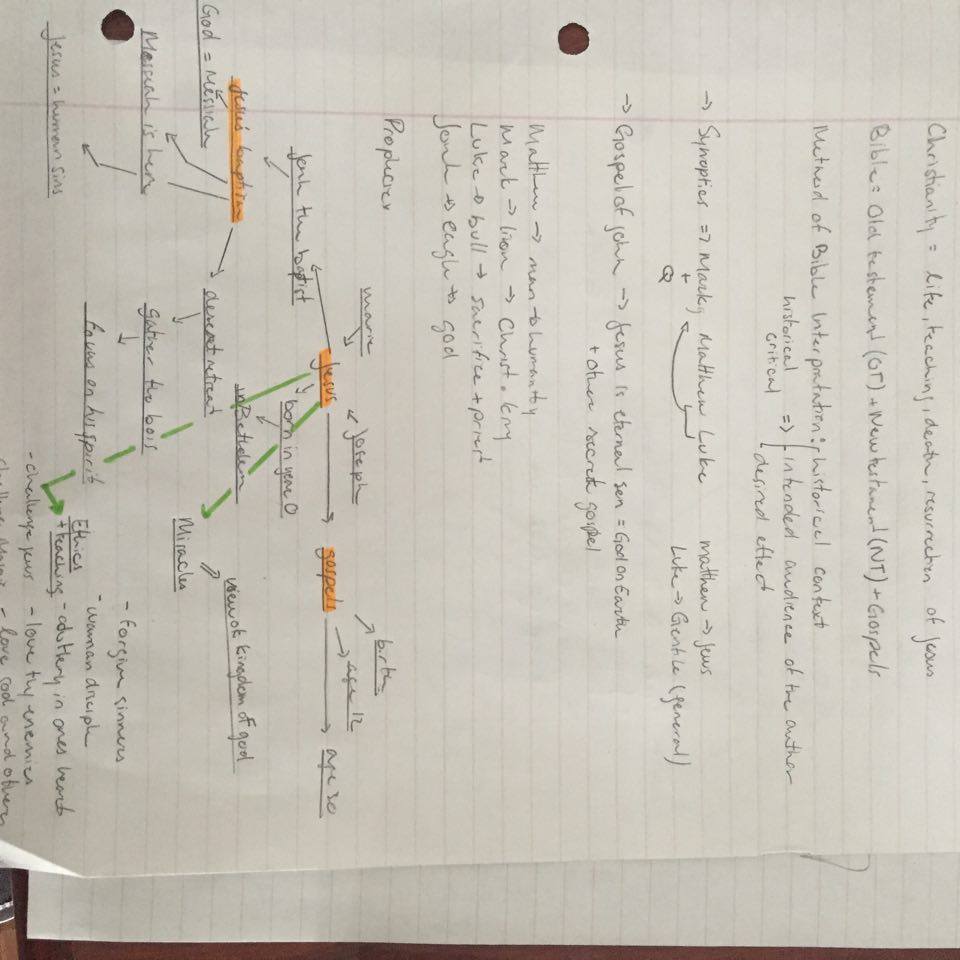 Christianity = life, teaching, death, resurrection of Jesus
Bible = Old testement (OT) + New testament (NT) + Gospels
Method of Bible Interpretation: historical context
historical critical => intended audience of the author
desired effect
→ Synoptics => Mark, Matthew Luke
+
Q
matthew → jews
Luke → Gentile (general)
→ Gospel of John → Jesus is eternal son = God on Earth
+ other secret gospel
Matthew → man → humanity
Mark → lion → Christ = king
Luke → bull → sacrifice + priest
John → eagle → god
Prophecies
marie
Joseph
birth
age 12
Jesus
gospels
age 30
John the baptist
born in year 0
in Betlehem
Jesus' baptism
desert retreat
view of kingdom of god
God = Messiah
Miracles
Messiah is here
gather the bois
focus on his spirit
Jesus = human sins
- forgive sinners
- woman disciple
Ethics
+ teaching
- adultery in ones heart
- challenge jews
- love thy enemies
- love god and others